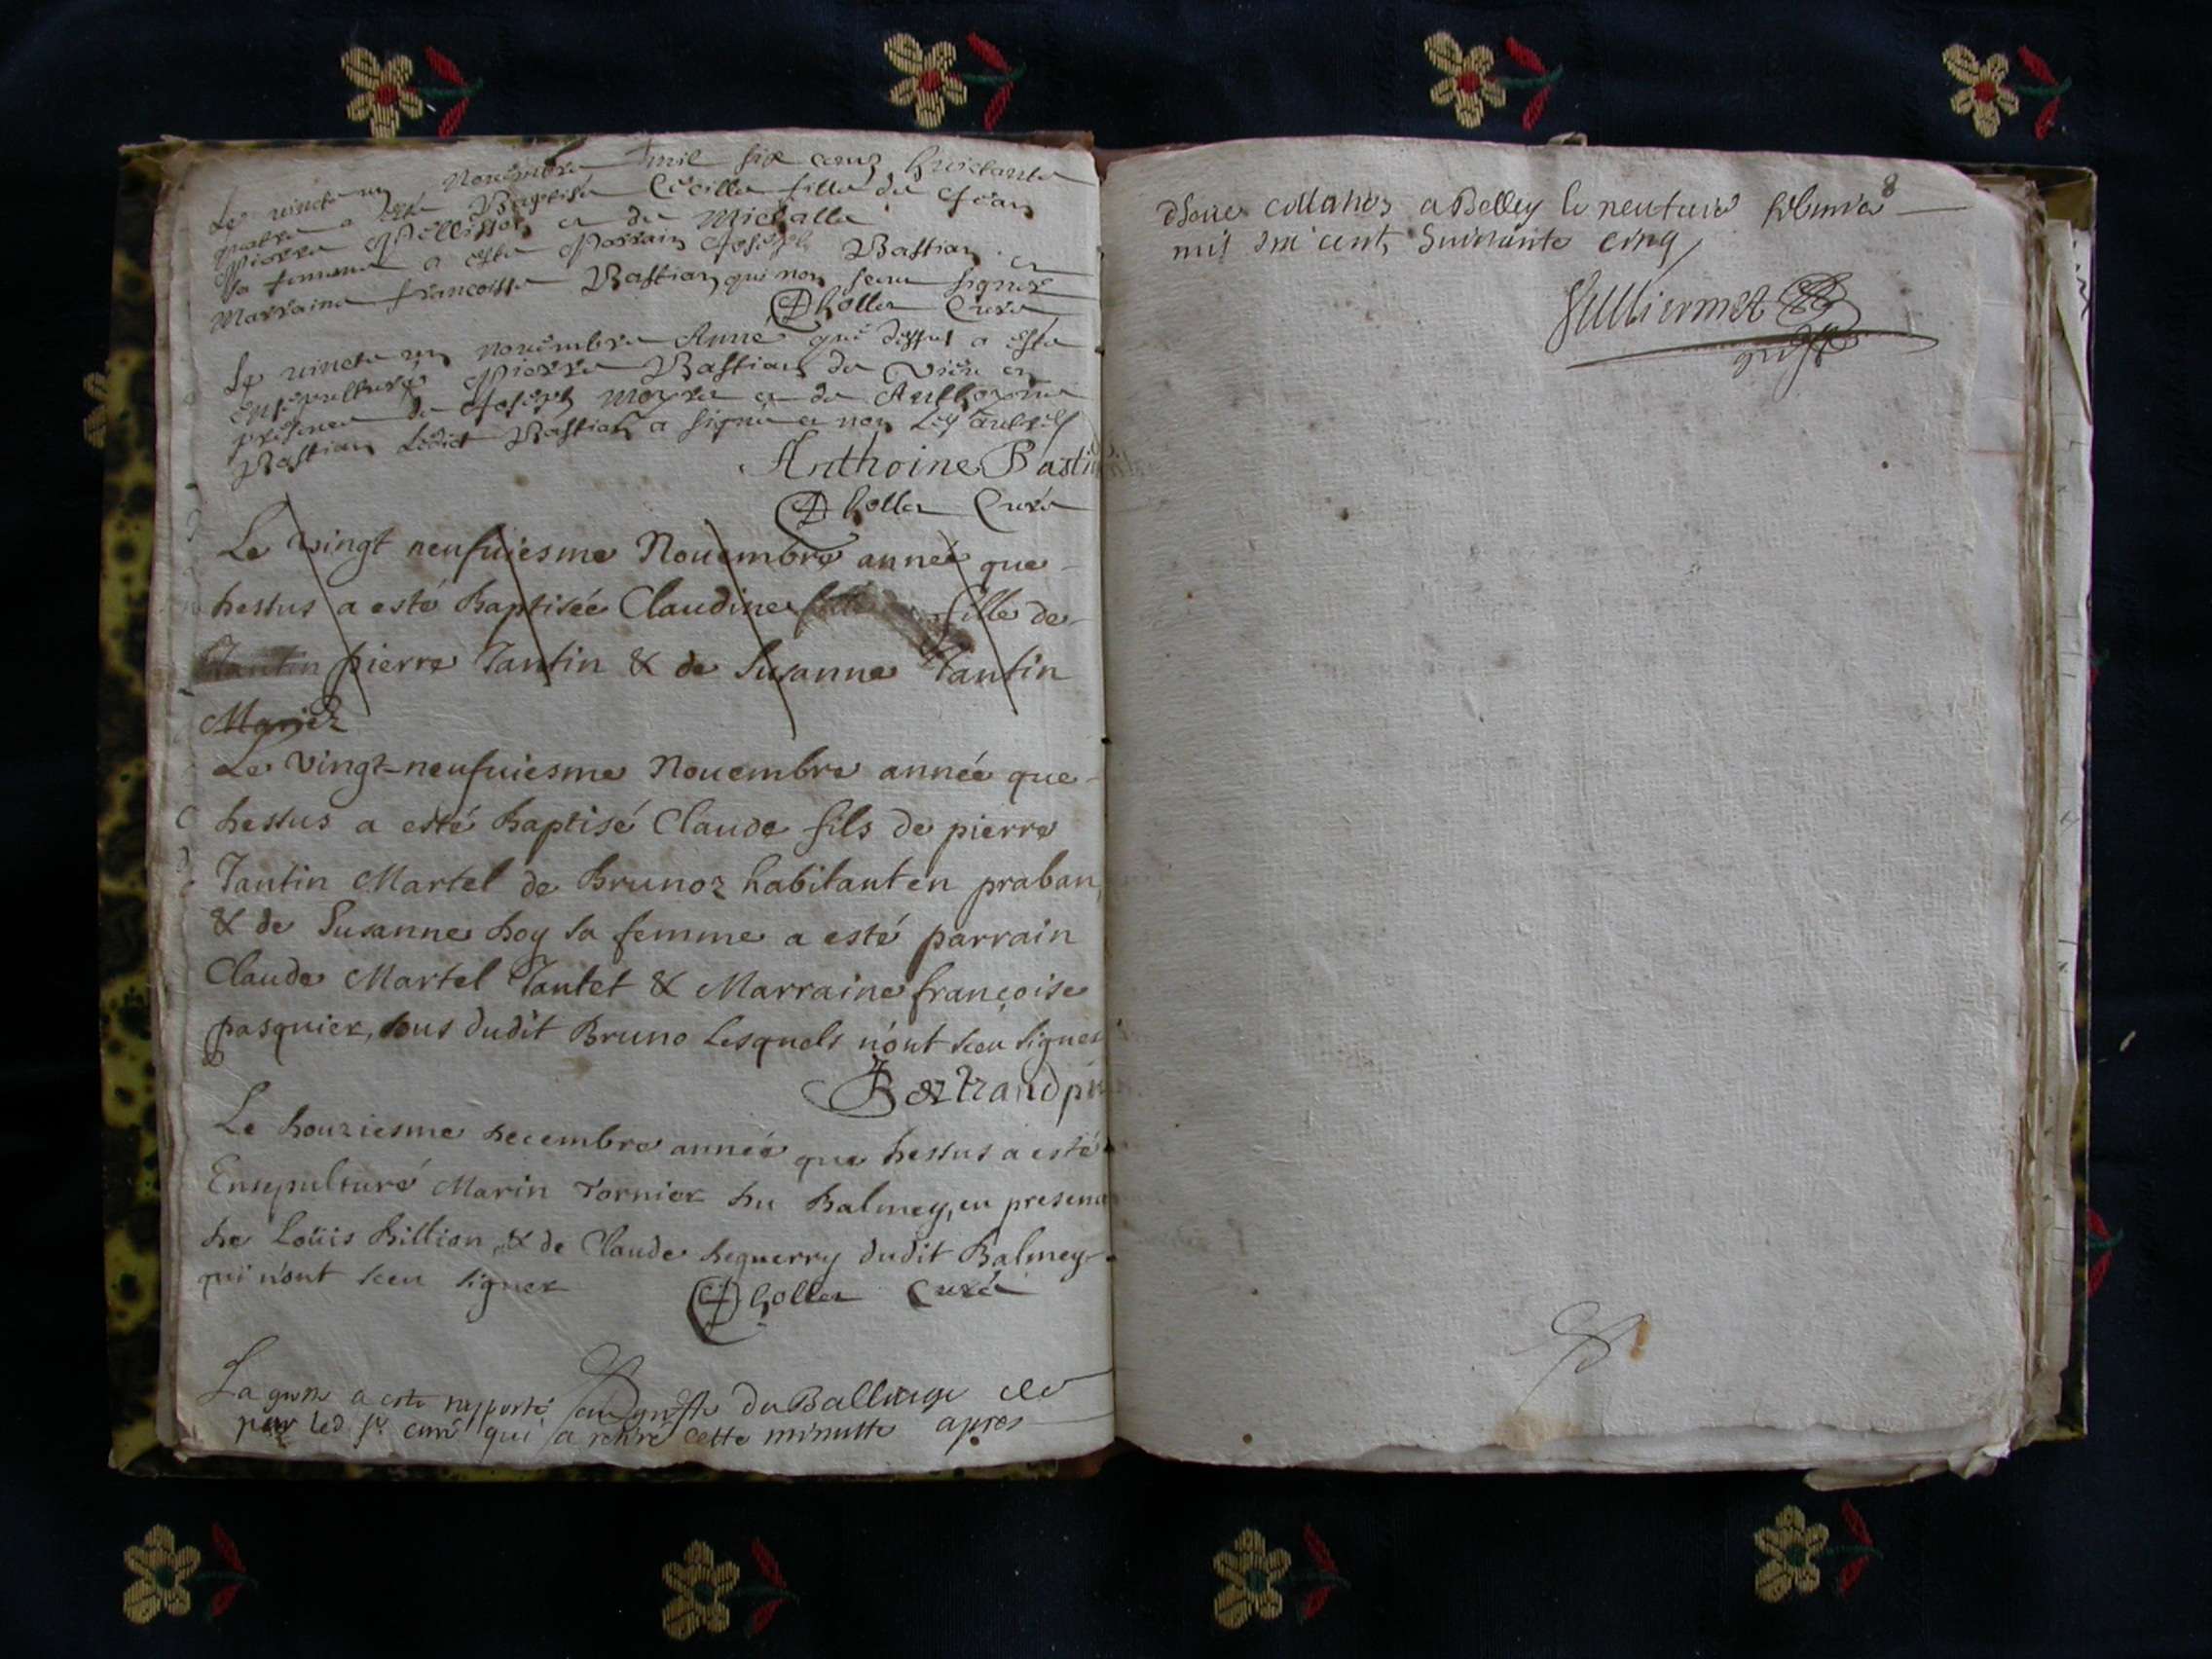 Le vincte un Nouembre mil six cens huictante
quatre a esté Baptisée Cécille fille de Jean
Pierre Pellisson et de Michalle
sa femme a esté Parrain Joseph Bastian et
Marraine francoisse Bastian qui non sceu signer
Choller Curé
Le vincte un nouembre Anné que dessus a esté
ensepulturé Pierre Bastian de Vieu en
présence de Joseph Moyra et de Anthoyne
Bastian Ledict Bastian a signé et non Les aultres
Anthoine Bastian
Choller Curé
Le vingt neufuiesme Nouembre année que
dessus a esté baptisée Claudine fille de
Tantin pierre Tantin & de Susanne Tantin
Mariez
Le vingt-neufuiesme Nouembre année que
dessus a esté baptisé Claude fils de pierre
Tantin Martel de Brunoz habitant en praban
& de Susanne hoy sa femme a esté parrain
Claude Martel Tantet & Marraine françoise
pasquier, tous dudit Bruno Lesquels n'ont sceu signer
Bertrand
Le douziesme decembre année que dessus a esté
Ensepulturé Marin Tornier du Balmey, en presence
de Loüis billion, & de Claude deguerry dudit Balmey
qui n'ont sceu signer
Choller Curé
La grosse a esté rapporté au greffe du Balliage
par led sr. curé qui a retiré cette minutte apres
8
collanés a Belley le neufuie
mil six cent huictante cinq
Gulliermet